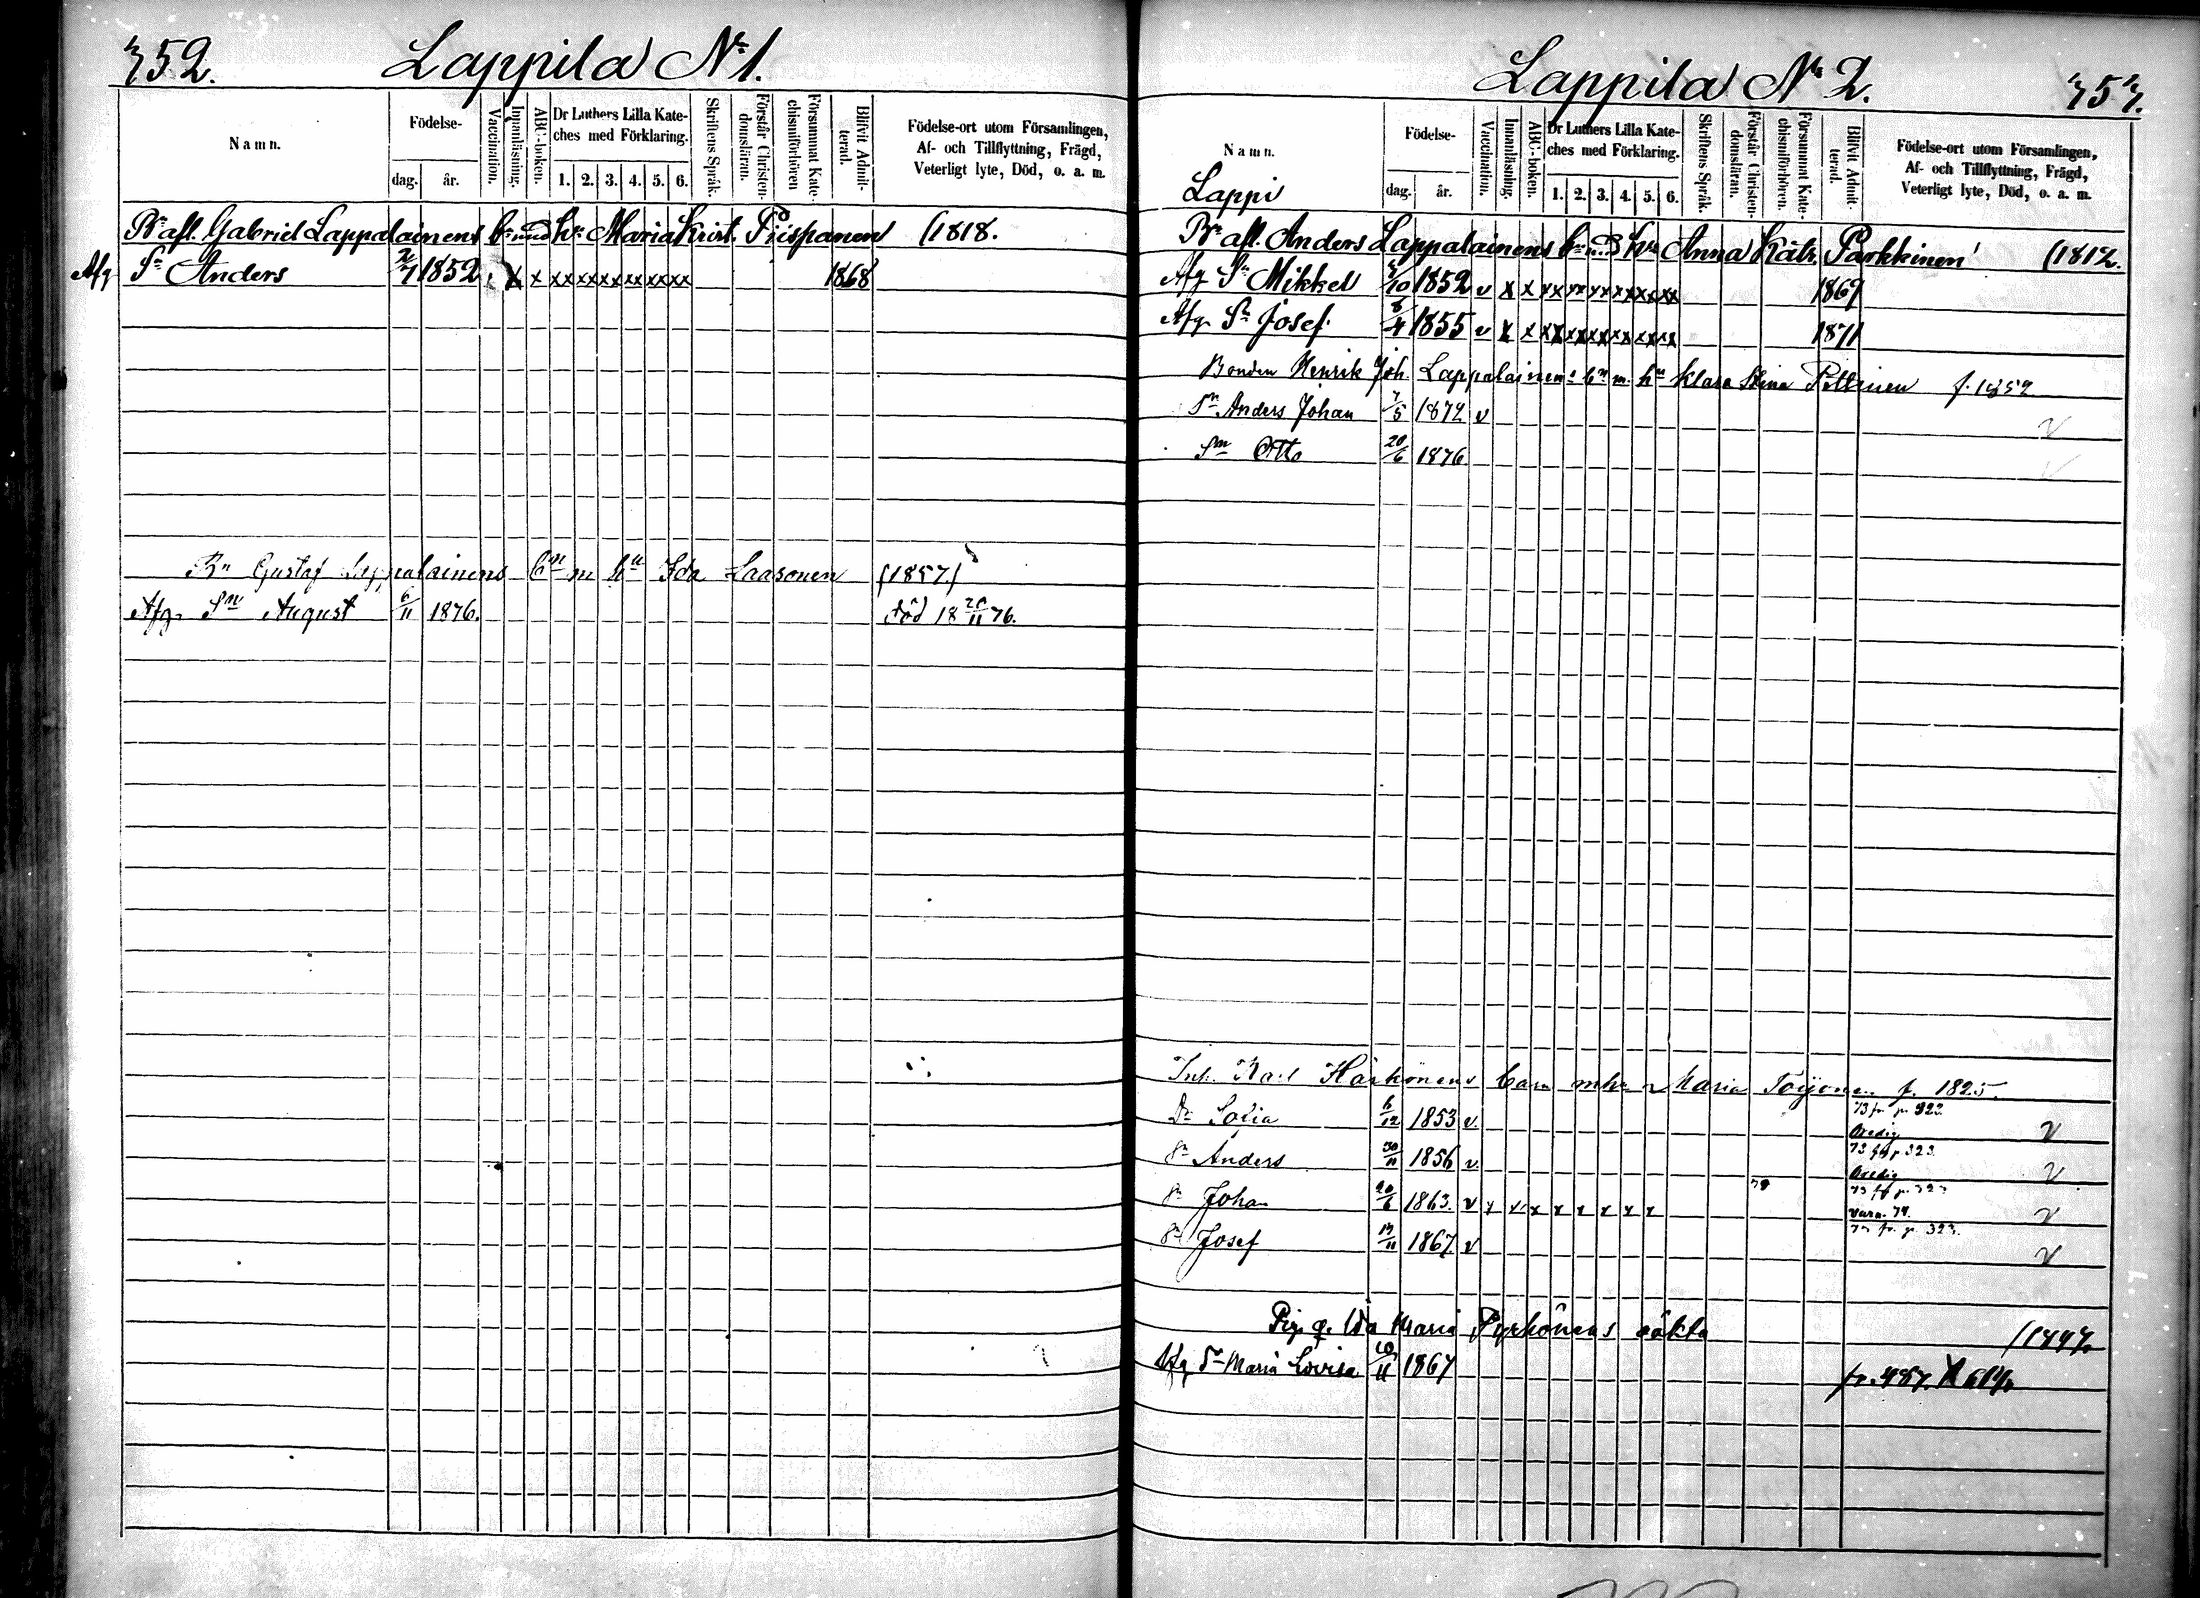 352.
Lappila No 1.
Namn.
Födelse-
dag.
år.
Vaccination.
Innanläsning.
ABC-boken.
Dr Luthers Lilla Kate-
ches med Förklaring.
1. 2. 3. 4. 5. 6.
Skriftens Språk.
Förstår Christen-
domsläran.
Försummat Kate-
chismiförhören
Blifvit Admit-
terad.
Födelse-ort utom Församlingen,
Af- och Tillflyttning, Frägd,
Veterligt lyte, Död, o. a. m.
Bn afl. Gabriel Lappalainens bn med hu Maria Krist. Piispanen (1818.
Afg Sn Anders 1852 x x xx xx xx xx xx xx 1868
Bn Gustaf Lappalainens bn m hu Ida Laasonen (1857)
Afg Sn August 6/11 1876. död 18 20/11 76.
Lappila No 2.
353.
Namn.
Födelse-
dag.
år.
Vaccination.
Innanläsning.
ABC-boken.
Dr Luthers Lilla Kate-
ches med Förklaring.
1. 2. 3. 4. 5. 6.
Skriftens Språk.
Förstår Christen-
domsläran.
Försummat Kate-
chismiförhören.
Blifvit Admit-
terad.
Födelse-ort utom Församlingen,
Af- och Tillflyttning, Frägd,
Veterligt lyte, Död, o. a. m.
Lappi
Bn afl. Anders Lappalainens bn med hu Anna Katr. Parkkinen (1812.
Afg Sn Mikkel 1852 v x x xx xx xx xx xx xx 1869
Afg Sn Josef 8/4 1855 v x x xx xx xx xx xx xx 1871
Bonden Henrik Joh. Lappalainens bn m. hu Klara Stina f. 1852
Sn Anders Johan 7/5 1872 v v
Sn Otto 20/6 1876 v
Inh. Karl Härkönens barn m hu Maria Toijonen f. 1825.
Dr Sofia 6/12 1853 v. 73 fr p. 323. v
Sn Anders 30/11 1856 v. 73 fr p 323. v
Sn Johan 20/6 1863. v x x x x x x x x 73 fr p. 323 v
Sn Josef 1867 v fr. p. 323. v
Pig. Ida Maria Pyrhönens oäkta
Afg Maria Lovisa 1867